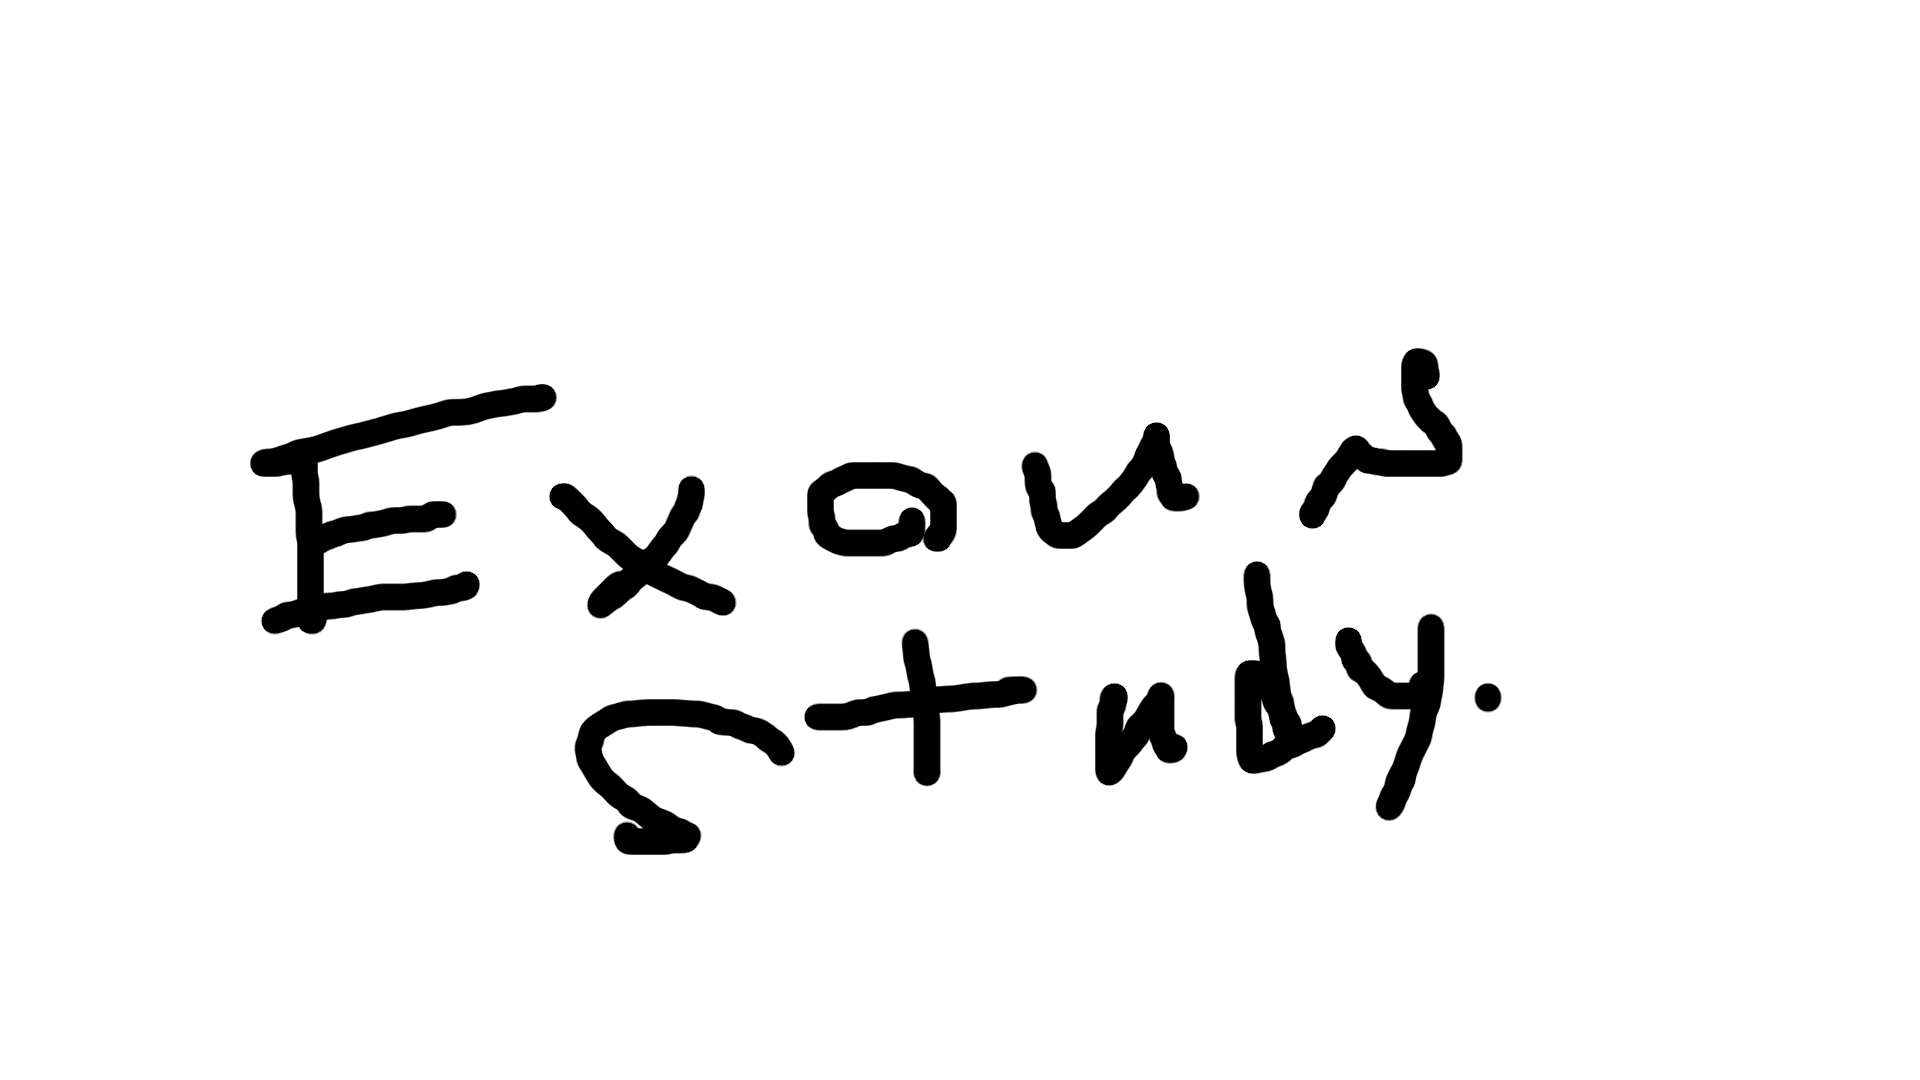 Exam
study.